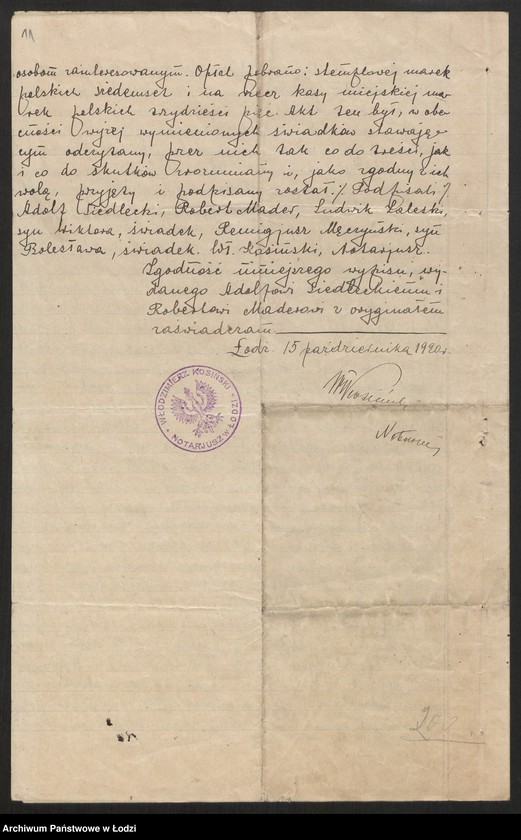 11
osobom zainteresowanym. Opłat pobrano: stemplowej marek
polskich siedemset i na rzecz kasy miejskiej ma-
rek polskich trzydzieści pięć. Akt ten był, w obe-
cności wyżej wymienionych świadków stawają-
cym odczytany, przez nich tak co do treści, jak
i co do skutków zrozumiany i, jako zgodny z ich
wolą, przyjęty i podpisany został :/ Podpisali /
Adolf Siedlecki, Robert Mader, Ludwik Zaleski,
syn Wiktora, świadek, Remigjusz Męczyński, syn
Bolesława, świadek. Wł. Kosiński, Notarjusz.
Zgodność niniejszego wypisu, wy-
danego Adolfowi Siedleckiemu i
Robertowi Maderowi z oryginałem
zaświadczam
Łódź 15 października 1920 r.
WŁODZIMIERZ KOSIŃSKI
NOTARJUSZ W ŁODZI
WKosiński
Notarjusz
Archiwum Państwowe w Łodzi